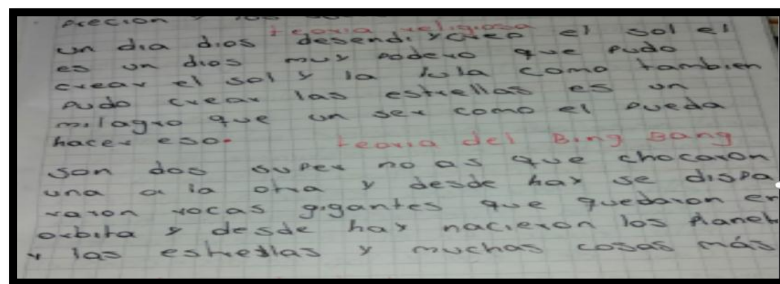 teoria religiosa
un dia dios desendi y creo el sol el
es un dios muy podero que pudo
crear el sol y la lula como tambien
pudo crear las estrellas es un
milagro que un ser como el pueda
hacer eso.
teoria del Bing Bang
son dos super no as que chocaron
una a la otra y desde hay se dispa
raron rocas gigantes que quedaron en
orbita y desde hay nacieron los planet
y las estrellas y muchas cosas más